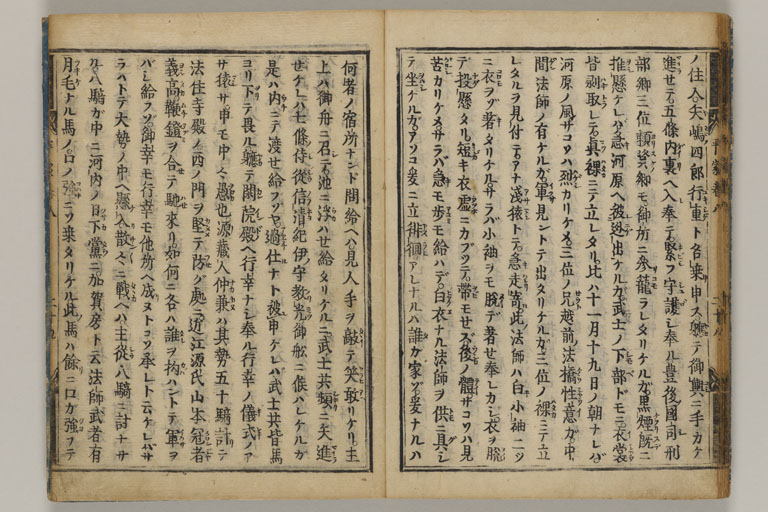 ノ住人矢嶋四郎行重ト名乗申ス軈テ御輿ニ手カケ
進セテ五條内裏ヘ入奉テ緊フ守護シ奉ル豊後國司刑
部卿三位頼資卿モ御所ニ参籠ラレタリケルガ黒煙既ニ
推懸ケレバ急河原ヘ被迯出ケルガ武士ノ下部ドモニ衣裳
皆剥取レテ真裸ニテ立レタリ比ハ十一月十九日ノ朝ナレバ
河原ノ風サコソハ烈カリケメ三位ノ兄越前ノ法橋性意ガ中
間法師ノ有ケルガ軍見ントテ出タリケルガ三位ノ裸ニテ立
レタルヲ見付テアナ淺猿トテ急走寄此法師ハ白小袖二ツ
ニ衣ヲゾ著タリケルサラバ小袖ヲモ脱デ著セ奉レカシ衣ヲ脱
テ投懸タリ短キ衣虚ニカブツテ帯モセズ後ノ體サコソハ見
苦カリケメサラバ急モ歩モ給ハデ白衣ナル法師ヲ供ニ具シ
テ坐ケルガアソコ爰ニ立徘徊アレナルハ誰ガ家ゾ爰ナルハ
何者ノ宿所ナンド問給ヘバ見人手ヲ敲テ笑敢リケリ主
上ハ御舟ニ召テ池ニ浮ハせ給タリケルニ武士共頻ニ矢進
セケレハ七條侍従信清紀伊守教光御舩ニ候ハレケルガ
是ハ内ニテ渡セ給フソヤ過仕ナト被申ケレハ武士共皆馬
ヨリ下テ畏ル軈テ閑院殿ヘ行幸ナシ奉ル行幸ノ儀式ノア
サ猿サ申モ中々愚也源藏人仲兼ハ其勢五十騎計テ
法住寺殿ノ西ノ門ヲ堅テ防グ處ニ近江源氏山本冠者
義高鞭鐙ヲ合テ馳來リ如何ニ各ハ誰ヲ抅ハントテ軍ヲ
バシ給フソ御幸モ行幸モ他所ヘ成ヌトコソ承レト云ケレバサ
ラハトテ大勢ノ中ヘ懸入散々ニ戰ヘハ主從八騎ニ討ナサ
ル八騎ガ中ニ河内ノ日下黨ニ加賀房ト云法師武者有
月毛ナル馬ノ口ノ強ニソ乗タリケル此馬ハ餘ニ口カ強フテ